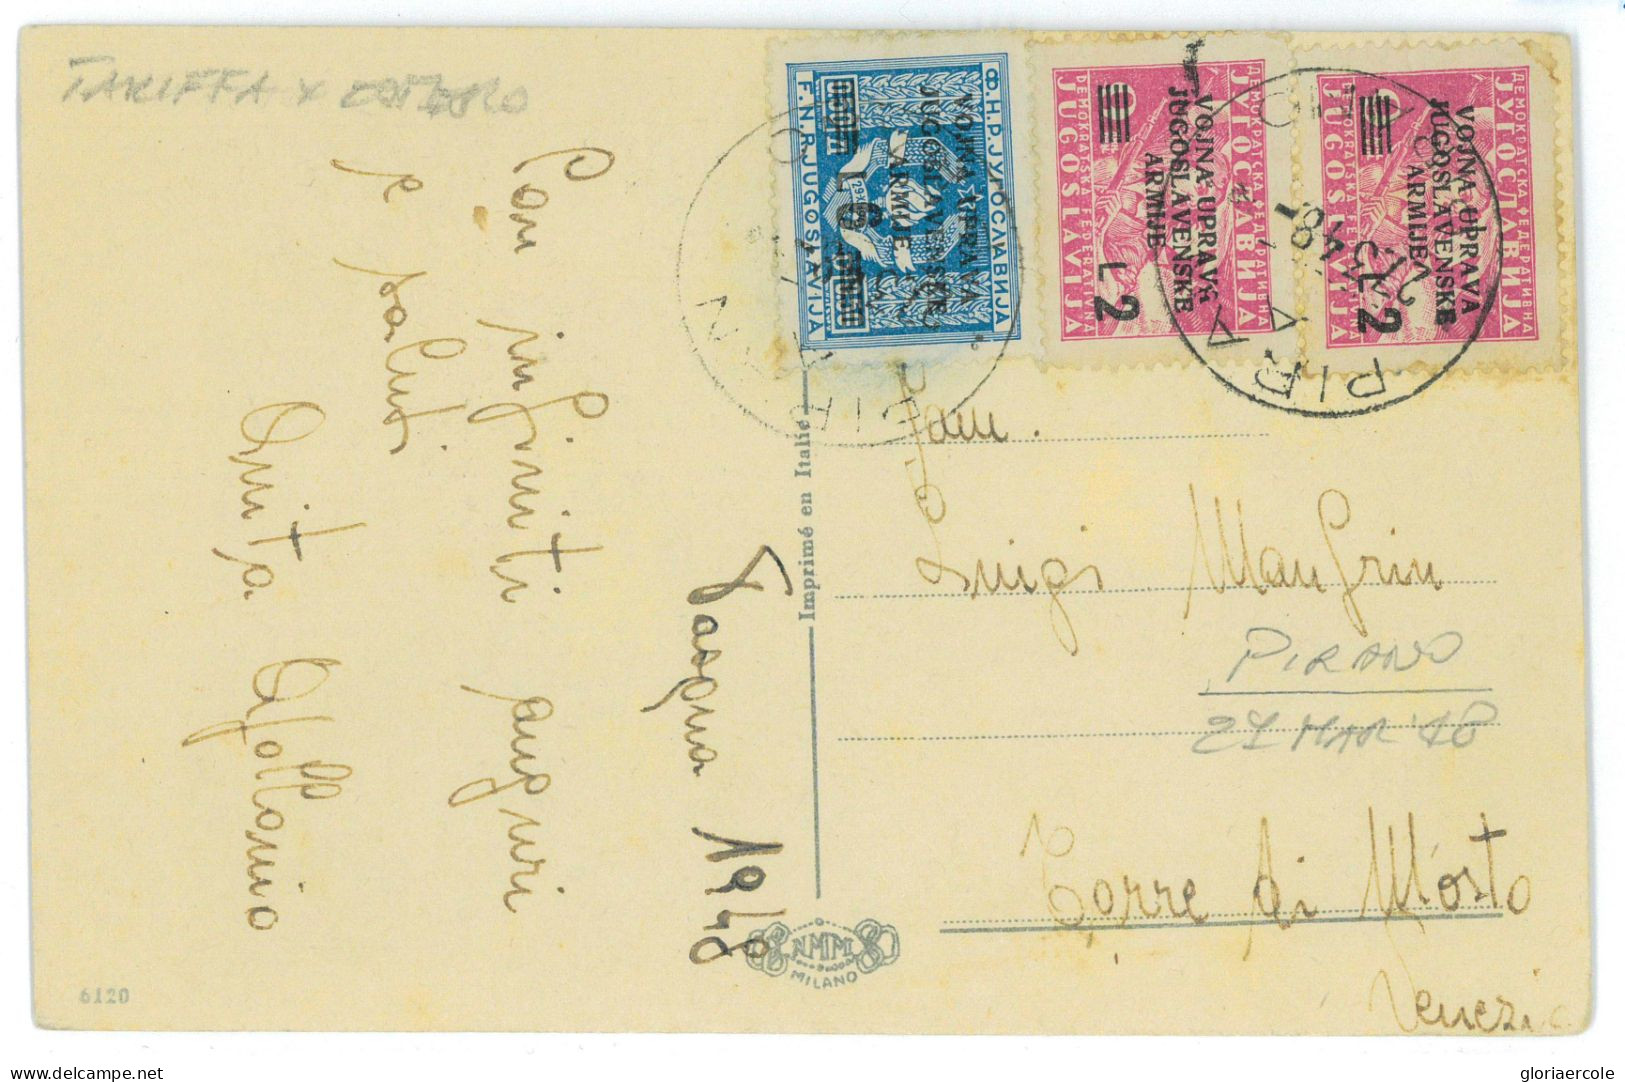 TARIFFA X ESTERO
Con infiniti auguri
e saluti
Anita Apollonio
Pasqua 1948
Imprimé en Italie
NMM
MILANO
6120
Ф.Н.Р.ЈУГОСЛАВИЈА
F.N.R.JUGOSLAVIJA
VOJNA UPRAVA
JUGOSLAVENSKE
ARMIJE
L 6
ДЕМОКРАТСКА ФЕДЕРАТИВНА
ЈУГОСЛАВИЈА
DEMOKRATSKA FEDERATIVNA
JUGOSLAVIJA
VOJNA UPRAVA
JUGOSLAVENSKE
ARMIJE
L 2
ДЕМОКРАТСКА ФЕДЕРАТИВНА
ЈУГОСЛАВИЈА
DEMOKRATSKA FEDERATIVNA
JUGOSLAVIJA
VOJNA UPRAVA
JUGOSLAVENSKE
ARMIJE
L 2
PIRAN
PIRANO
Fam.
Luigi Manfrin
PIRANO
27 MAR '48
Torre di Mosto
Venezia
gloriaercole